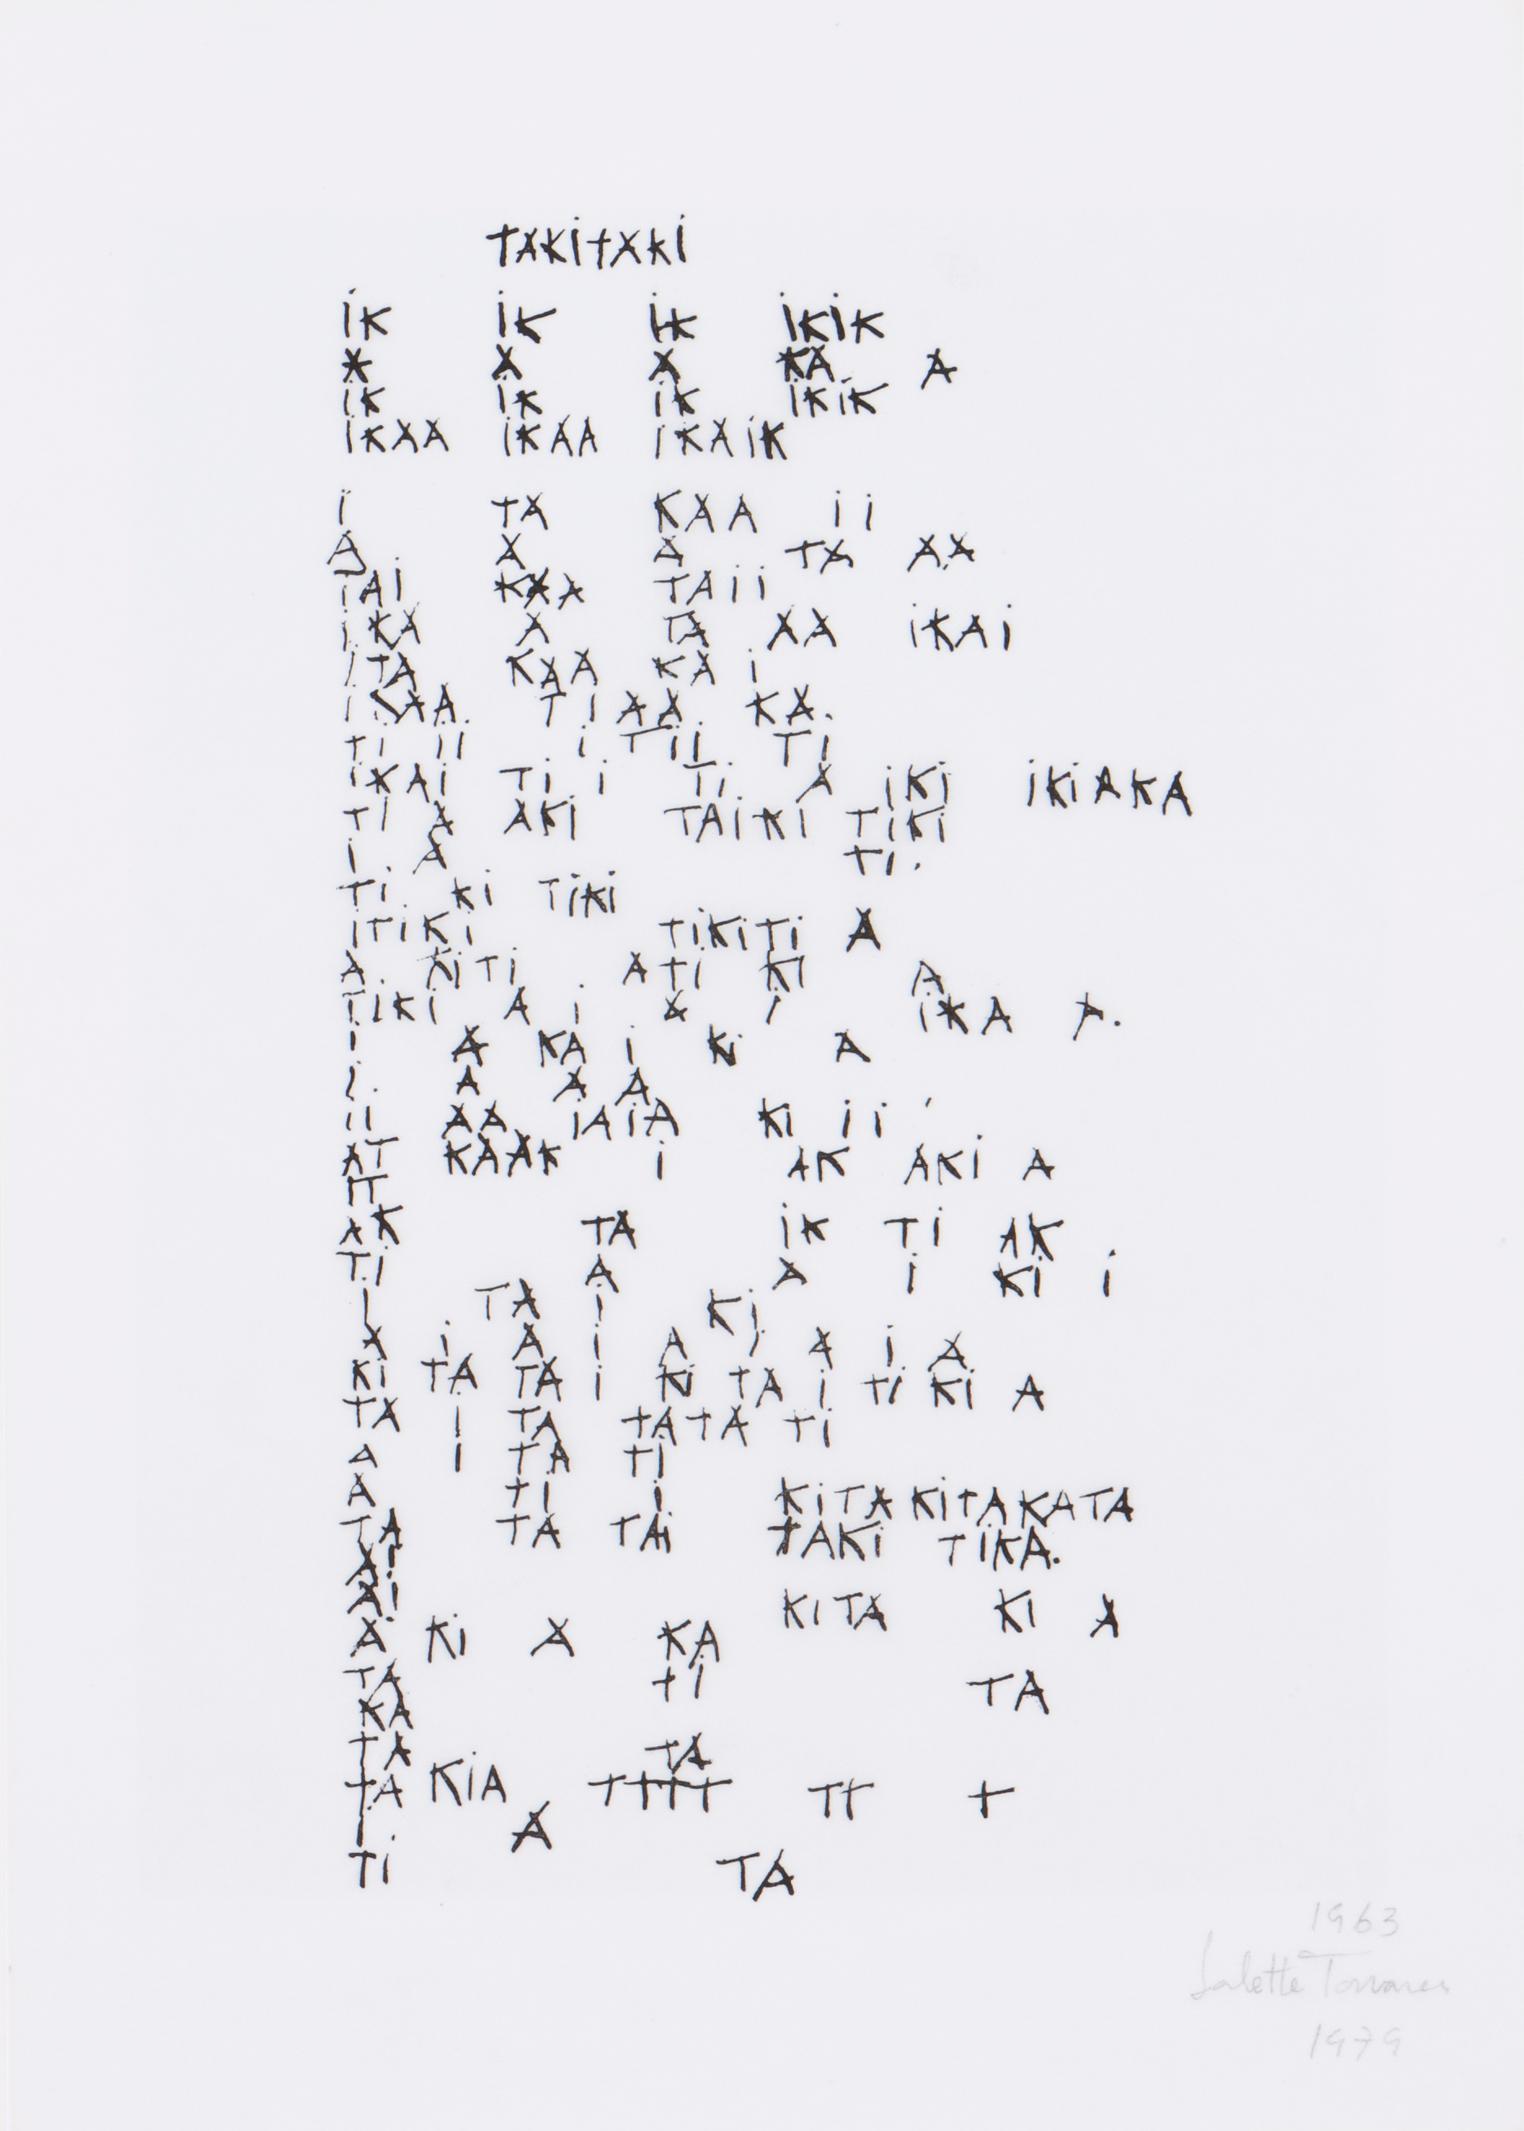 TAKiTAKi
iK iK iK iKiK
A A A KA A
iK iK iK iKiK
iKAA iKAA iKAiK
i TA KAA ii
A A A TA AA
TAi KAA TAii
iKA A TA AA iKAi
iTA KAA KA i
iKAA Ti AA KA.
Ti ii i Tii Ti
iKAi Ti i Ti A iKi iKiAKA
Ti A AKi TAiKi TiKi
i A Ti.
Ti Ki TiKi
iTiKi TiKiTi A
A KiTi ATi Ki A
TiKi A i A i iKA A.
i A KA i Ki A
i. A A A
ii AA iAiA Ki ii
AT KAAK i AK AKi A
iT
AK TA iK Ti AK
Ti A A i Ki i
i TA i Ki
A i A i A i A i A
Ki TA TA i Ki TA i Ti Ki A
TA i TA TATA Ti
A i TA Ti
A Ti i KiTA KiTAKATA
TA TA TAi TAKi TiKA.
Ai
Ai KiTA Ki A
A Ki A KA
TA Ti TA
KA
TA TA
TA KiA TTTT TT T
i A
Ti TA
1963
Salette Tavares
1979